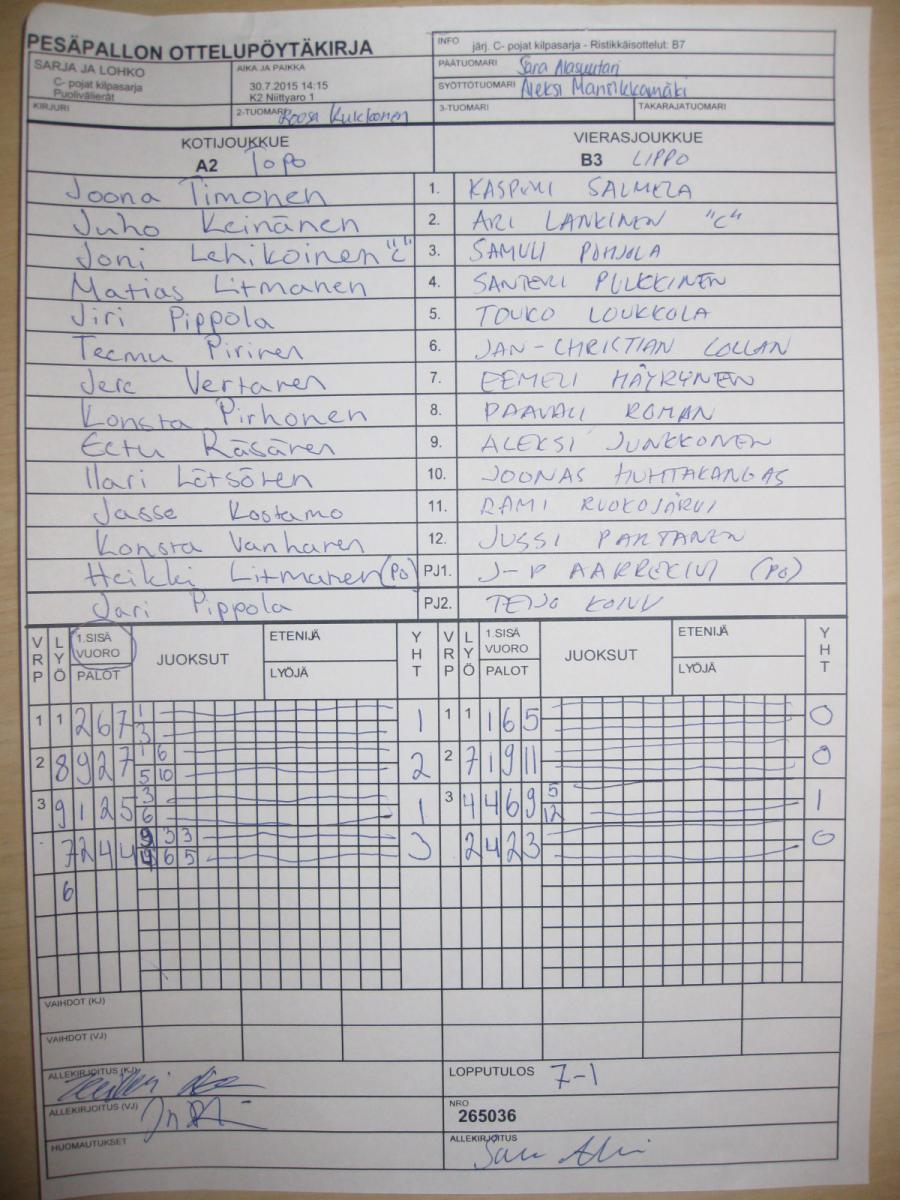 PESÄPALLON OTTELUPÖYTÄKIRJA
INFO järj. C- pojat kilpasarja - Ristikkäisottelut: B7
SARJA JA LOHKO
C- pojat kilpasarja
Puolivälierät
AIKA JA PAIKKA
30.7.2015 14:15
K2 Niittyaro 1
PÄÄTUOMARI Sara Alasuutari
SYÖTTÖTUOMARI Aleksi Mansikkamäki
KIRJURI
2-TUOMARI Roosa Kukkonen
3-TUOMARI
TAKARAJATUOMARI
KOTIJOUKKUE
A2 ToPo
VIERASJOUKKUE
B3 LIPPO
Joona Timonen 1. KASPERI SALMELA
Juho Keinänen 2. ARI LANKINEN "C"
Joni Lehikoinen "C" 3. SAMULI POHJOLA
Matias Litmanen 4. SANTERI PULKKINEN
Jiri Pippola 5. TOUKO LOUKKOLA
Teemu Pirinen 6. JAN-CHRISTIAN COLLAN
Jere Vertanen 7. EEMELI HÄYRYNEN
Konsta Pirhonen 8. PAAVALI ROMAN
Eetu Räsänen 9. ALEKSI JUNKKONEN
Ilari Lötsönen 10. JOONAS HUHTAKANGAS
Jasse Kostamo 11. RAMI RUOKOJÄRVI
Konsta Vanhanen 12. JUSSI PARTANEN
Heikki Litmanen (PO) PJ1. J-P (PO)
Jari Pippola PJ2. TEIJO
VRP LYÖ 1.SISÄ VUORO PALOT JUOKSUT ETENIJÄ LYÖJÄ YHT VRP LYÖ 1.SISÄ VUORO PALOT JUOKSUT ETENIJÄ LYÖJÄ YHT
1 1 2 6 7 1 1 1 1 1 6 5 0
3
2 8 9 2 7 1 6 2 2 7 1 9 11 0
5 10
3 9 1 2 5 3 1 3 4 4 6 9 5 1
6 12
7 2 4 4 9 3 3 3 2 4 2 3 0
4 6 5
6
VAIHDOT (KJ)
VAIHDOT (VJ)
ALLEKIRJOITUS (KJ)
LOPPUTULOS 7-1
ALLEKIRJOITUS (VJ)
NRO
265036
HUOMAUTUKSET
ALLEKIRJOITUS